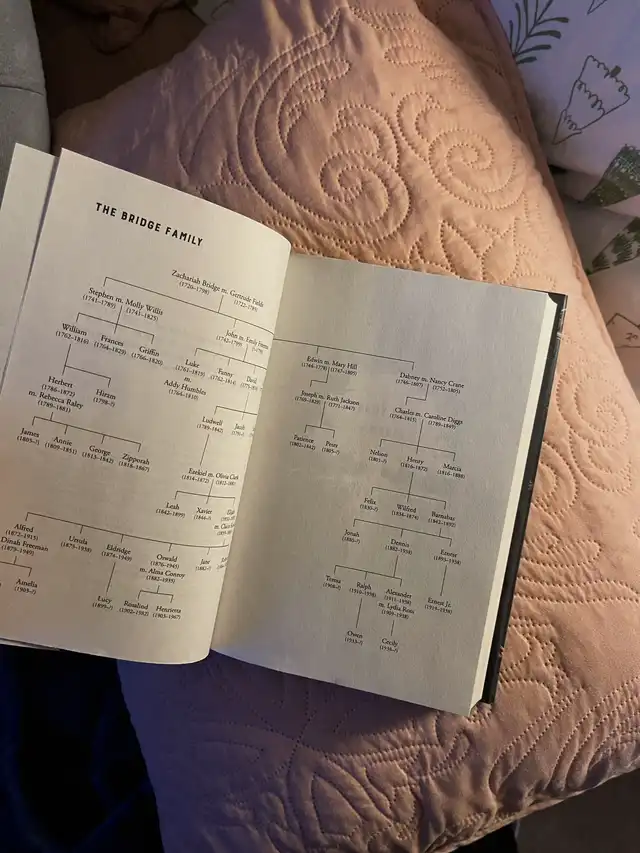 THE BRIDGE FAMILY
Zachariah Bridge m. Gertrude Fields
(1720–1798) (1722–1785)
Stephen m. Molly Willis
(1741–1789) (1743–1825)
John m. Emily
(1742–1799)
William
(1762–1816)
Frances
(1764–1829)
Griffin
(1766–1820)
Luke
(1761–1819)
m.
Addy Humbles
(1764–1810)
Fanny
(1762–1814)
David
Herbert
(1786–1872)
m. Rebecca Raley
(1785–1881)
Hiram
(1798–?)
Ludwell
(1789–1842)
James
(1805–?)
Annie
(1809–1851)
George
(1813–1842)
Zipporah
(1816–1867)
Ezekiel m. Olivia Clark
(1814–1872)
Leah
(1842–1899)
Xavier
(1844–?)
Alfred
(1872–1915)
Dinah Freeman
(1879–1949)
Ursula
(1873–1958)
Eldridge
(1874–1949)
Oswald
(1876–1945)
m. Alma Conroy
(1882–1935)
Jane
Amelia
(1903–?)
Lucy
(1899–?)
Rosalind
(1902–1982)
Henrietta
(1903–1967)
Edwin m. Mary Hill
(1744–1778) (1747–1805)
Dabney m. Nancy Crane
(1746–1807) (1752–1805)
Joseph m. Ruth Jackson
(1769–1828) (1771–1847)
Charles m. Caroline Diggs
(1764–1815) (1789–1849)
Patience
(1802–1842)
Peter
(1805–?)
Nelson
(1801–?)
Henry
(1816–1872)
Marcia
(1816–1898)
Felix
(1835–?)
Wilfred
(1838–1874)
Barnabas
(1842–1892)
Jonah
(1880–?)
Dennis
(1882–1934)
Ernest
(1893–1934)
Tressa
(1908–?)
Ralph
(1910–1938)
Alexander
(1915–1938)
m. Lydia Ross
(1909–1938)
Ernest Jr.
(1914–1938)
Owen
(1933–?)
Cecily
(1936–?)